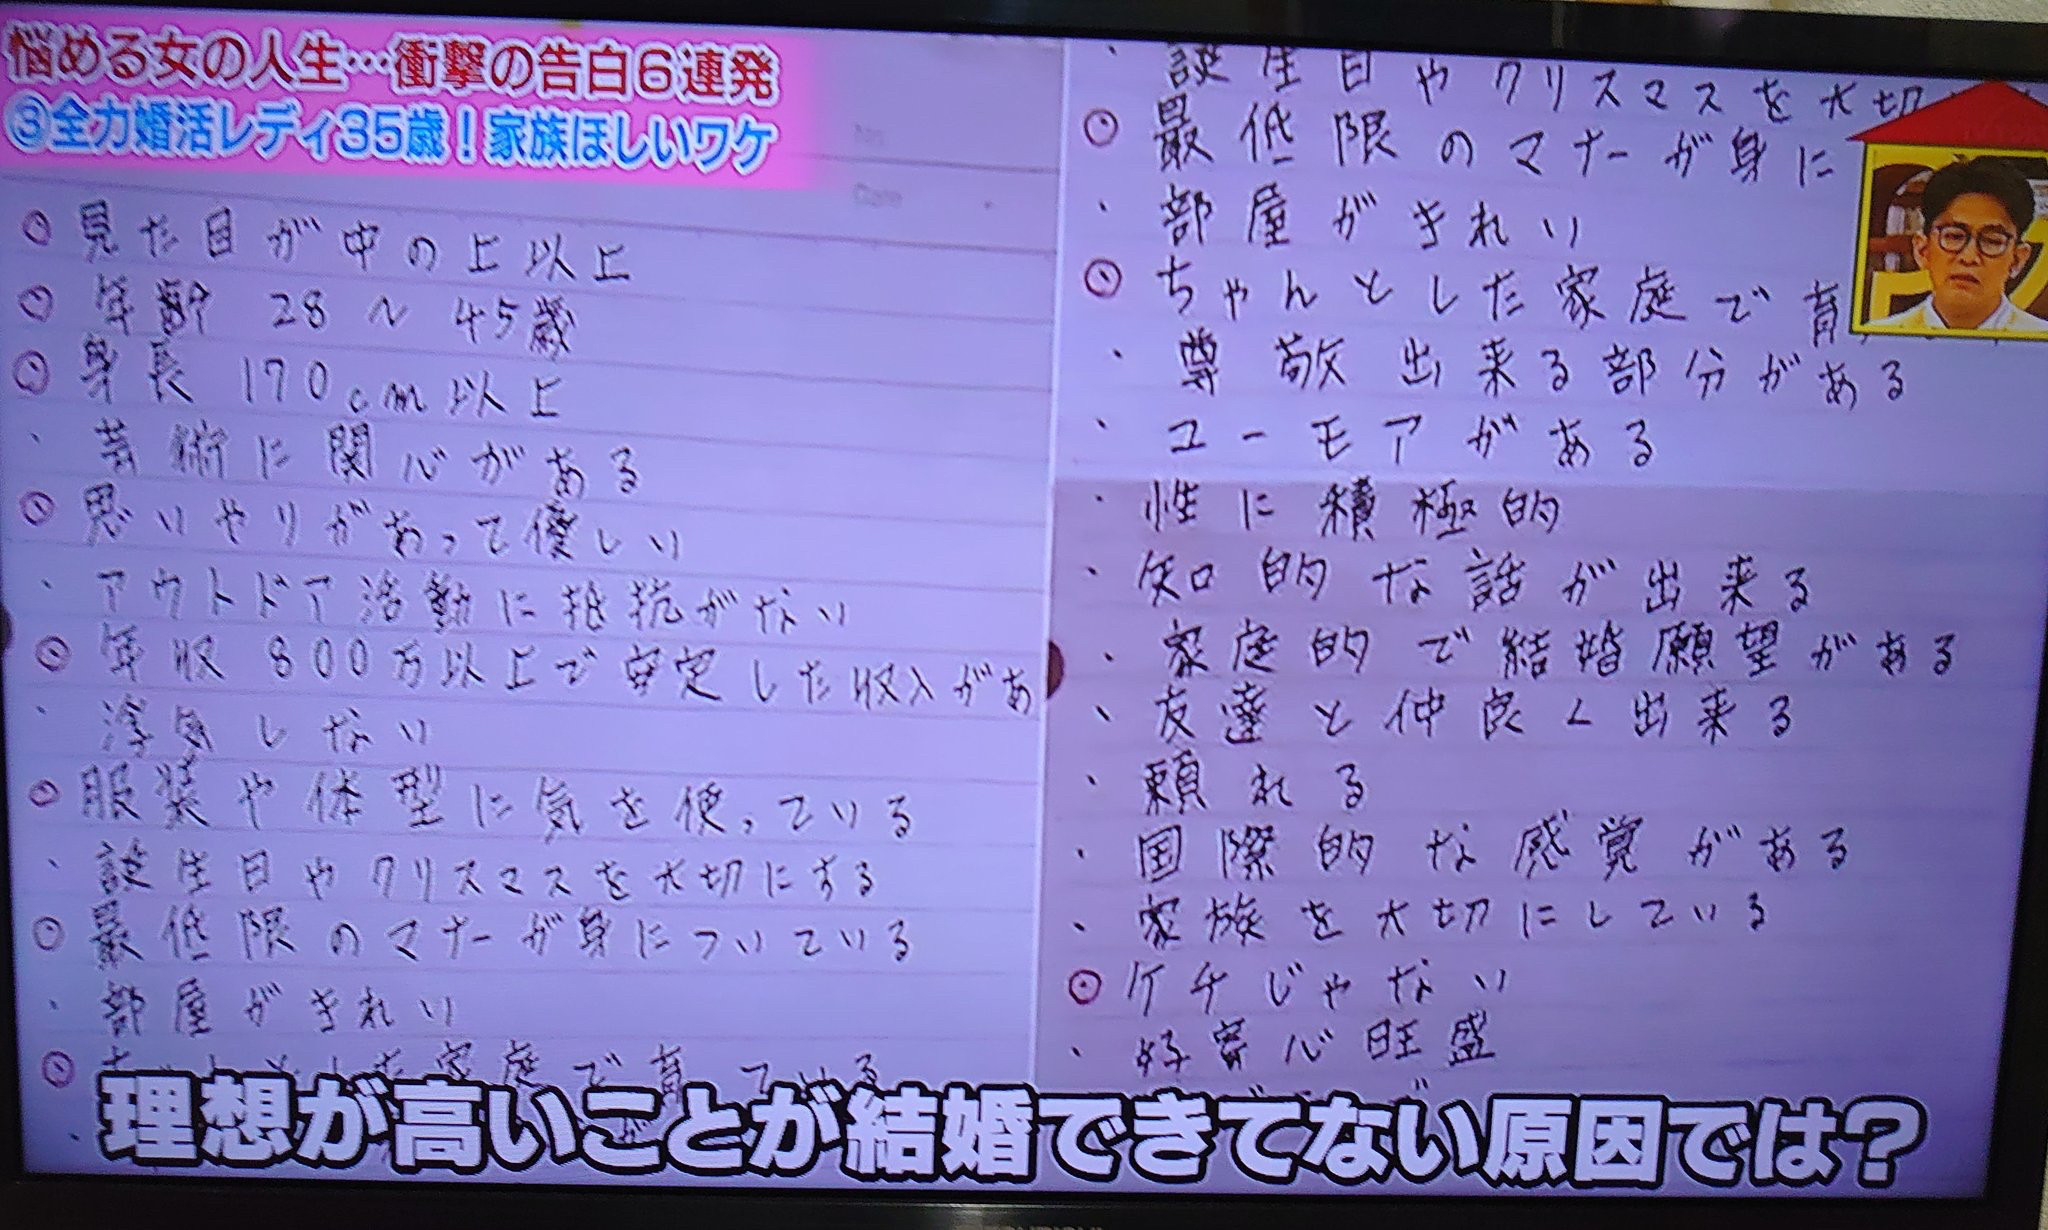 悩める女の人生…衝撃の告白6連発
③全力婚活レディ35歳！家族ほしいワケ
見た目が中の上以上
年齢 28～45歳
身長 170cm以上
・芸術に関心がある
思いやりがあって優しい
・アウトドア活動に抵抗がない
年収 800万以上で安定した収入があ
・浮気しない
服装や体型に気を使っている
・誕生日やクリスマスを大切にする
最低限のマナーが身についている
・部屋がきれい
家庭で育っている
・誕生日やクリスマスを大切
最低限のマナーが身に
・部屋がきれい
ちゃんとした家庭で育
・尊敬出来る部分がある
・ユーモアがある
・性に積極的
・知的な話が出来る
・家庭的で結婚願望がある
・友達と仲良く出来る
・頼れる
・国際的な感覚がある
・家族を大切にしている
ケチじゃない
・好奇心旺盛
理想が高いことが結婚できてない原因では？